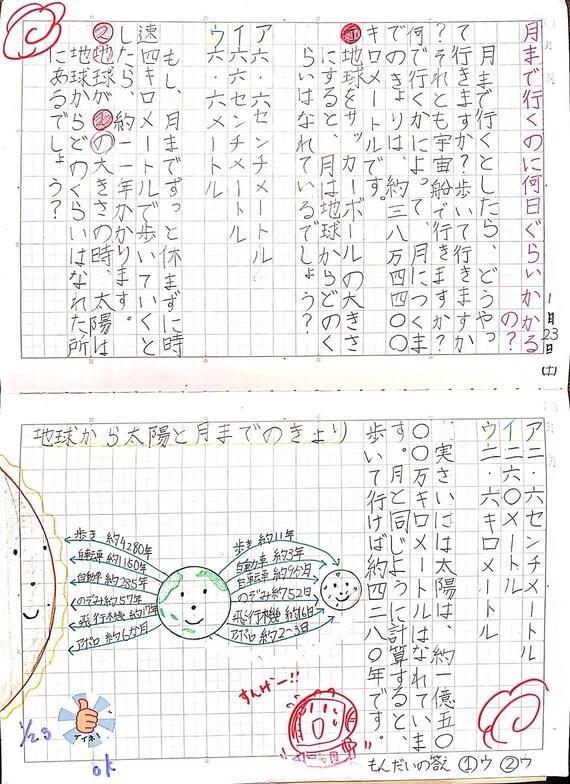 1月23日(土)
月まで行くのに何日ぐらいかかる
の?
月まで行くとしたら、どうやっ
て行きますか?歩いて行きますか
?それとも宇宙船で行きますか?
何で行くかによって、月につくま
でのきょりは、約三八万四四〇〇
キロメートルです。
①地球をサッカーボールの大きさ
にすると、月は地球からどのく
らいはなれているでしょう?
ア六・六センチメートル
イ六六センチメートル
ウ六・六メートル
もし、月までずっと休まずに時
速四キロメートルで歩いていくと
したら、約一一年かかります。
②地球が①の大きさの時、太陽は
地球からどのくらいはなれた所
にあるでしょう?
ア二・六センチメートル
イ二六〇メートル
ウ二・六キロメートル
実さいには太陽は、約一億五〇
〇〇万キロメートルはなれていま
す。月と同じように計算すると、
歩いて行けば約四二八〇年です。
もんだいの答え ①ウ ②ウ
地球から太陽と月までのきょり
歩き 約11年
自動車 約3年
自転車 約9か月
のぞみ約52日
飛行機 約16日
アポロ 約2~3日
歩き 約4280年
自転車 約1150年
自動車 約285年
のぞみ 約57年
飛行機 約17年
アポロ 約6か月
すんげー!!
アイネ!
1/23
ok